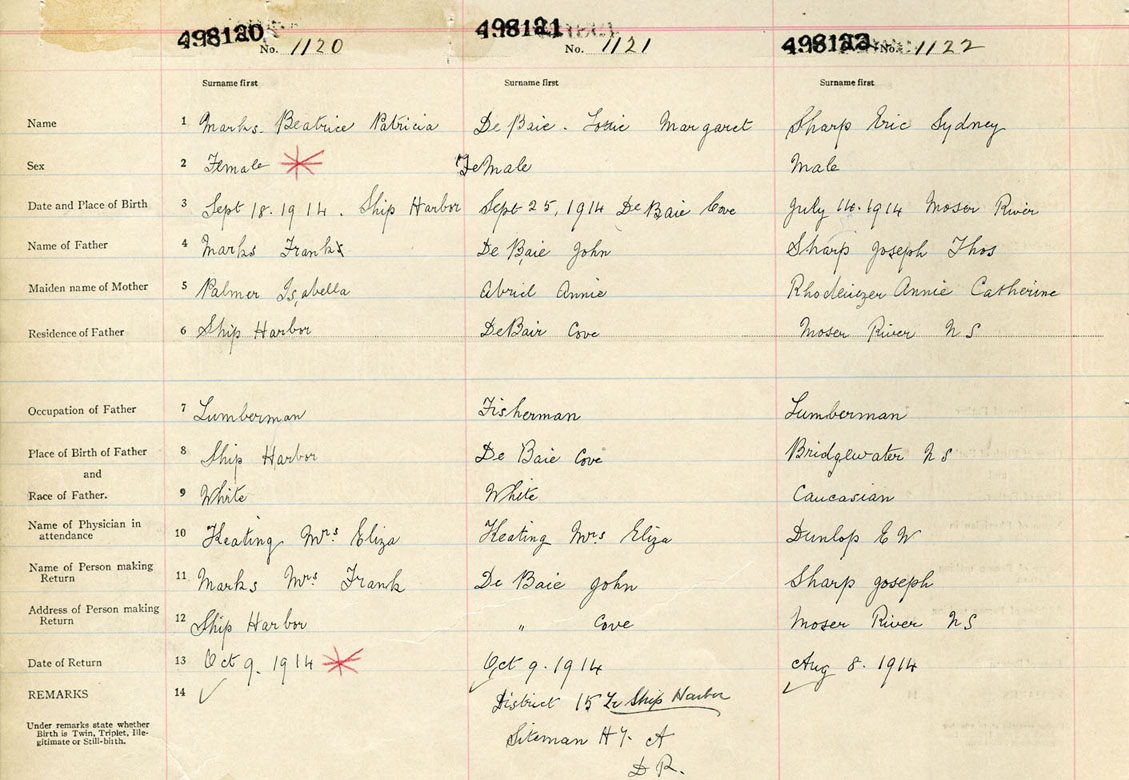 498120 No. 1120 498121 No. 1121 498122 No. 1122
Surname first Surname first Surname first
Name 1 Marks. Beatrice Patricia De Baie. Margaret Sharp Eric Sydney
Sex 2 Female Female Male
Date and Place of Birth 3 Sept 18. 1914. Ship Harbor Sept 25, 1914 De Baie Cove July 14. 1914 Moser River
Name of Father 4 Marks Frank De Baie John Sharp Joseph Thos
Maiden name of Mother 5 Palmer Isabella Abriel Annie Rhodenizer Annie Catherine
Residence of Father 6 Ship Harbor DeBair Cove Moser River N S
Occupation of Father 7 Lumberman Fisherman Lumberman
Place of Birth of Father 8 Ship Harbor De Baie Cove Bridgewater N S
and
Race of Father. 9 White White Caucasian
Name of Physician in attendance 10 Keating Mrs Eliza Keating Mrs Eliza Dunlop E W
Name of Person making Return 11 Marks Mrs Frank De Baie John Sharp Joseph
Address of Person making Return 12 Ship Harbor " Cove Moser River N S
Date of Return 13 Oct 9. 1914 Oct 9. 1914 Aug 8. 1914
REMARKS 14 ✓ ✓ ✓
District 15 Ship Harbor
Under remarks state whether
Birth is Twin, Triplet, Ille-
gitimate or Still-birth.
Siteman A
D R.